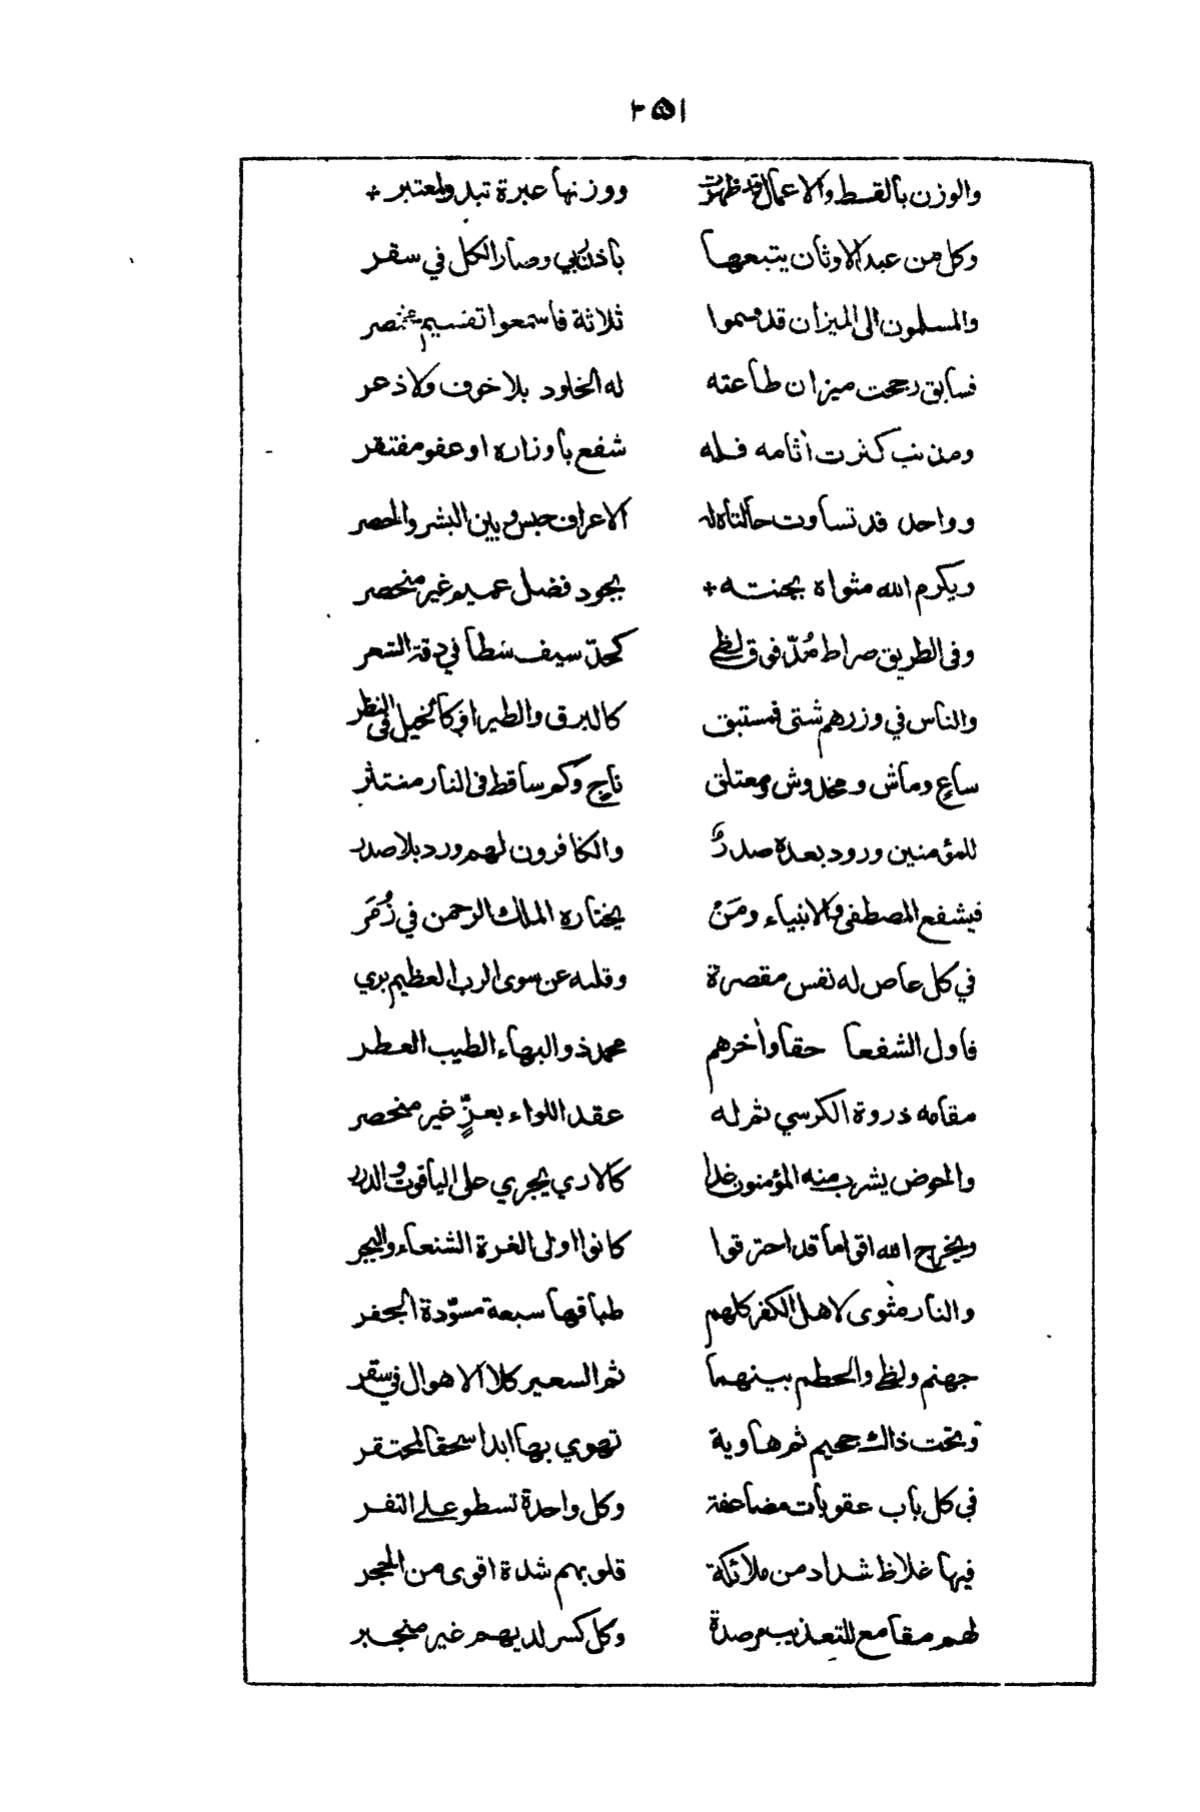 ٢٥١
والوزن بالقسط والاعمال قد ظهرت ووزنها عبرة تبدو لمعتبر +
وكل من عبد الاوثان يتبعها باذن ربي وصار الكل في سقر
والمسلمون الى الميزان قد قسموا ثلاثة فاسمعوا تقسيم مختصر
فسابق رجحت ميزان طاعته له الخلود بلا خوف ولا ذعر
ومذنب كثرت أثامه فله شفع باوزاره او عفو مفتقر
وواحد قد تساوت حالتاه له الاعراف حبس وبين البشر والحصر
ويكرم الله مثواه بجنته + بجود فضل عميم غير منحصر
وفى الطريق صراط مُدّ فوق لظى كحدّ سيف سَطا في دقة الشعر
والناس في وزرهم شتى فمستبق كالبرق والطير او كالخيل فى النظر
ساعٍ وماش ومخدوش ومعتلق ناجٍ وكم ساقط فى النار منتثر
للمؤمنين ورود بعده صدرٌ والكافرون لهم ورد بلا صدر
فيشفع المصطفى والانبياء ومَنْ يختاره الملك الرحمن في زُمَر
في كل عاص له نفس مقصرة وقلبه عن سوى الرب العظيم بري
فاول الشفعا حقا وأخرهم محمد ذو البهاء الطيب العطر
مقامه ذروة الكرسي ثم له عقد اللواء بعزٍّ غير منحصر
والحوض يشرب منه المؤمنون غدا كالاري يجري على الياقوت والدرر
ويخرج الله اقواما قد احترقوا كانوا اولى الغرة الشنعاء والبجر
والنار مثوى لاهل الكفر كلهم طباقها سبعة مسوّدة الحفر
جهنم ولظى والحطم بينهما ثم السعير كلا الاهوال في سقر
وتحت ذاك جحيم ثم هاوية تهوي بها ابدا سحقا لمحتقر
في كل باب عقوبات مضاعفة وكل واحدة تسطو على النفر
فيها غلاظ شداد من ملائكة قلوبهم شدة اقوى من الحجر
لهم مقامع للتعذيب مرصدة وكل كسر لديهم غير منجبر